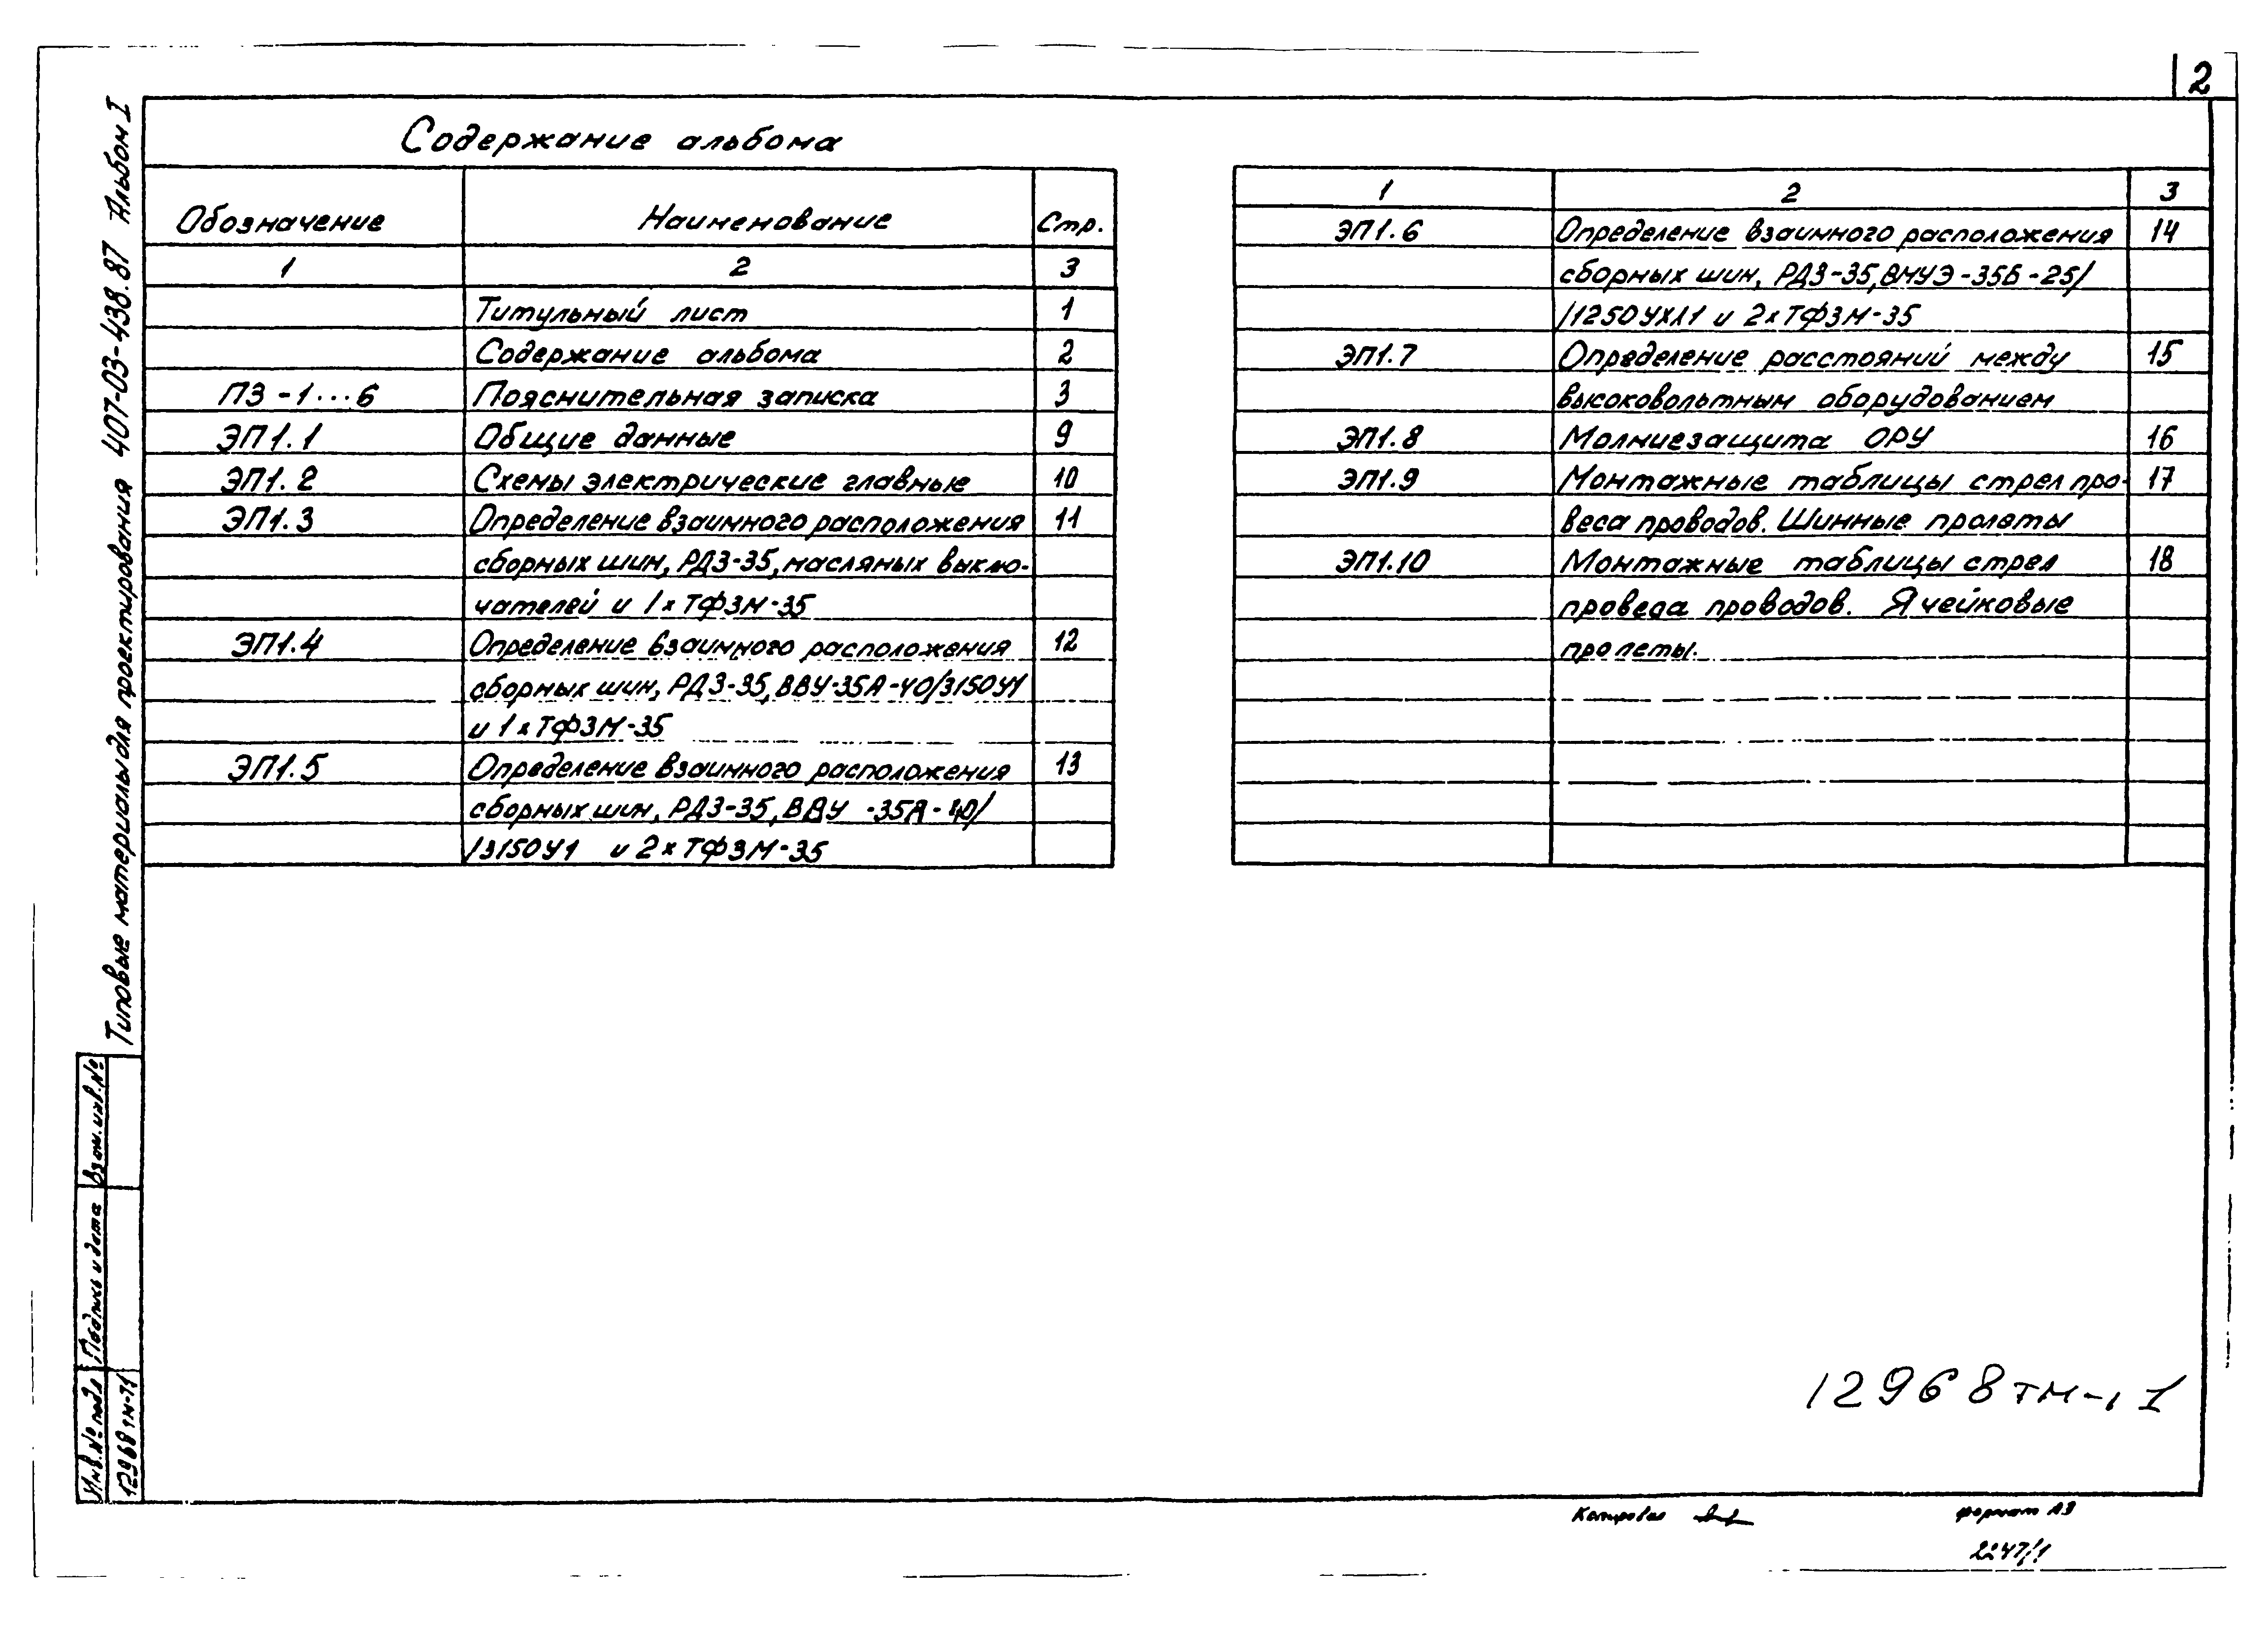 2
Содержание альбома
Обозначение Наименование Стр.
1 2 3
Титульный лист 1
Содержание альбома 2
ПЗ-1...6 Пояснительная записка 3
ЭП1.1 Общие данные 9
ЭП1.2 Схемы электрические главные 10
ЭП1.3 Определение взаимного расположения 11
сборных шин, РДЗ-35, масляных выклю-
чателей и 1×ТФЗМ-35
ЭП1.4 Определение взаимного расположения 12
сборных шин, РДЗ-35, ВВУ-35А-40/3150У1
и 1×ТФЗМ-35
ЭП1.5 Определение взаимного расположения 13
сборных шин, РДЗ-35, ВВУ -35А-40/
/3150У1 и 2×ТФЗМ-35
1 2 3
ЭП1.6 Определение взаимного расположения 14
сборных шин, РДЗ-35, ВМУЭ-35Б-25/
/1250УХЛ1 и 2×ТФЗМ-35
ЭП1.7 Определение расстояний между 15
высоковольтным оборудованием
ЭП1.8 Молниезащита ОРУ 16
ЭП1.9 Монтажные таблицы стрел про- 17
веса проводов. Шинные пролеты
ЭП1.10 Монтажные таблицы стрел 18
провеса проводов. Ячейковые
пролеты.
Типовые материалы для проектирования 407-03-438.87 Альбом I
Взам. инв. №
Подпись и дата
Инв. № подл
12968тм-т1
12968тм-, I
Копировал
формат А3
2247/1